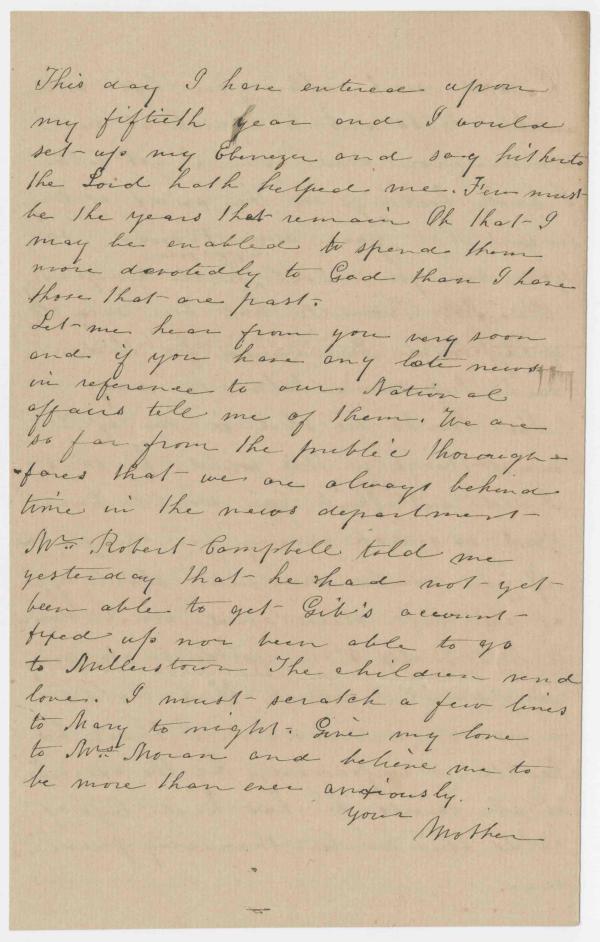 This day I have entered upon
my fiftieth year and I would
set up my Ebenezer and say hitherto
the Lord hath helped me. Few must
be the years that remain Oh that I
may be enabled to spend them
more devotedly to God than I have
those that are past.
Let me hear from you very soon
and if you have any late news
in reference to our National
affairs tell me of them. We are
so far from the public thorough=
fares that we are always behind
time in the news department
Mrs Robert Campbell told me
yesterday that he had not yet
been able to get Gib's account
fixed up nor been able to go
to Millerstown The children send
love. I must scratch a few lines
to Mary to night. Give my love
to Mrs. Moran and believe me to
be more than ever anxiously.
your
Mother